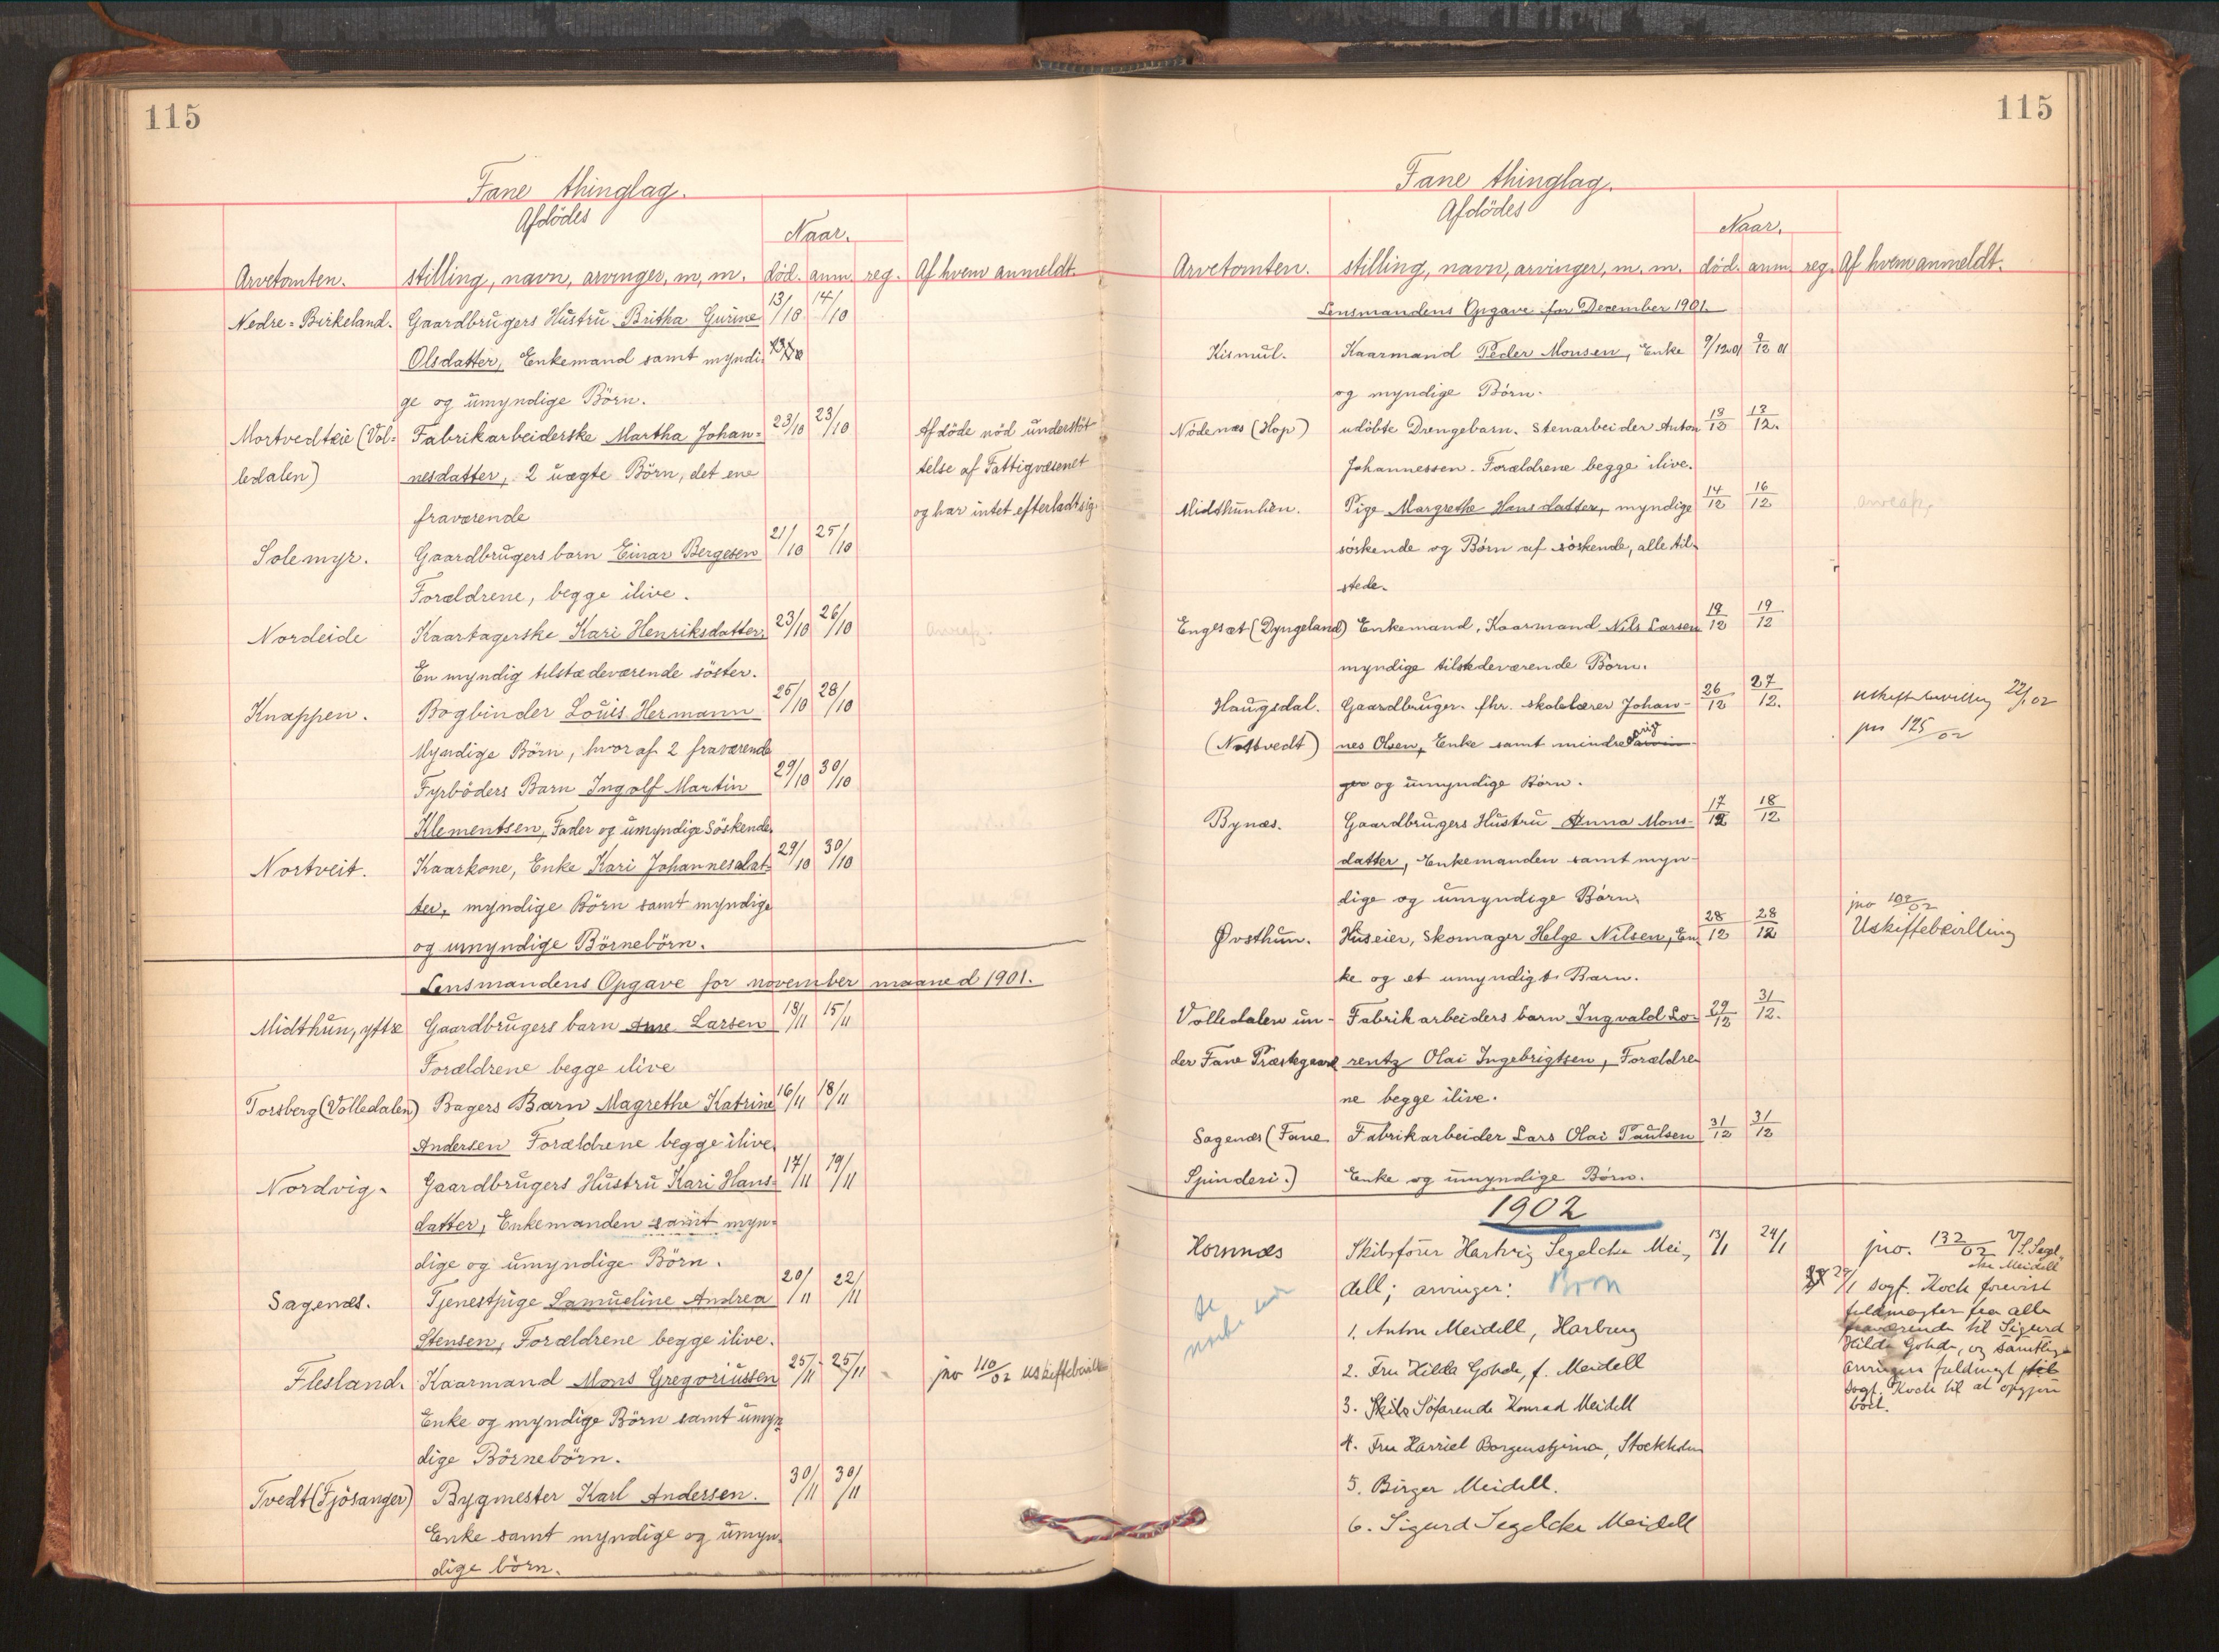 115
Fane thinglag.
Afdödes
Naar.
Arvetomten. stilling, navn, arvinger, m, m. död. anm. reg. Af hvem anmeldt.
Nedre=Birkeland. Gaardbrugers Hustru Britha Gurine 13/10 14/10
Olsdatter, Enkemand samt myndi-
ge og umyndige Börn.
Mortvedteie (Vol= Fabrikarbeiderske Martha Johan= 23/10 23/10 Afdöde nöd understöt
ledalen) nesdatter, 2 uægte Börn, det ene telse af Fattigvæsenet
fraværende og har intet efterladt sig.
Solemyr. Gaardbrugers barn Einar Bergesen 21/10 25/10
Forældrene, begge ilive.
Nordeide Kaartagerske Kari Henriksdatter, 23/10 26/10
En myndig tilstædeværende söster.
Knappen. Bogbinder Louis Hermann 25/10 28/10
Myndige Börn, hvoraf 2 fraværende
Fyrböders Barn Ingolf Martin 29/10 30/10
Klementsen, Fader og umyndige Söskende.
Nortveit. Kaarkone, Enke Kari Johannesdat= 29/10 30/10
ter, myndige Börn samt myndige
og umyndige Börnebörn.
Lensmandens Opgave for november maaned 1901.
Midthun, yftre Gaardbrugers barn Larsen 13/11 15/11
Forældrene begge ilive
Torsberg (Volledalen) Bagers Barn Magrethe Katrine 16/11 18/11
Andersen Forældrene begge ilive.
Nordvig. Gaardbrugers Hustru Kari Hans= 17/11 19/11
datter, Enkemanden samt myn=
dige og umyndige Börn.
Sagenæs. Tjenestpige Samueline Andrea 20/11 22/11
Stensen, Forældrene begge ilive.
Flesland. Kaarmand Mons Gregoriussen 25/11 25/11 jno 110/02
Enke og myndige Börn samt umyn=
dige Börnebörn.
Tvedt (Fjösanger) Bygmester Karl Andersen. 30/11 30/11
Enke samt myndige og umyn=
dige börn.
115
Fane thinglag.
Afdödes
Naar.
Arvetomten. stilling, navn, arvinger, m. m. död. anm. reg. Af hvem anmeldt.
Lensmandens Opgave for December 1901.
Kismul. Kaarmand Peder Monsen, Enke 9/12 01 9/12 01
og myndige Börn.
Nödenæs (Hop) udöbte Drengebarn. Stenarbeider Anton 13/12 13/12.
Johannessen. Forældrene begge ilive.
Midthunlien. Pige Margrethe Hansdatter, myndige 14/12 16/12
söskende og Börn af söskende, alle til-
stede.
Englsæt (Dyngeland) Enkemand, Kaarmand Nils Larsen 19/12 19/12
myndige tilstedeværende Börn.
Haugsdal. Gaardbruger. fhr. skolelærer Johan- 26/12 27/12. 22/1 02
(Nottvedt) nes Olsen, Enke samt mindreaarig jno 125/02
og umyndige Börn.
Bynæs. Gaardbrugers Hustru Anna Mons- 17/12 18/12
datter, Enkemanden samt myn-
dige og umyndige Börn.
jno 102/02
Øvsthun. Huseier, Skomager Helge Nilsen, En- 28/12 28/12 Uskiftebevilling
ke og et umyndigt Barn.
Volledalen un- Fabrikarbeiders barn Ingvald Lo- 29/12 31/12.
der Fane Præstegaard rentz Olai Ingebrigtsen, Forældre-
ne begge ilive.
Sagenæs (Fane Fabrikarbeider Lars Olai Paulsen 31/12 31/12
Spinderi.) Enke og umyndige Börn.
1902
Hornnæs Skibsförer Hartvig Segelcke Mei- 13/1 24/1 jno. 132/02 S. Segel-
cke Meidell
dell; arvinger: Born
29/1 sagf. Koch forevist
fuldmagter fra alle
1. Anton Meidell, Harburg
fraværende til Sigurd
Hilda Gohde, og samtlige
2. Fru Hilda Gohde, f. Meidell
arvingers fuldmagt til
sagf. Koch til at opgjøre
3. Söfarende Konrad Meidell
boet.
4. Fru Harriet Borgenstjerna, Stockholm
5. Birger Meidell.
6. Sigurd Segelcke Meidell